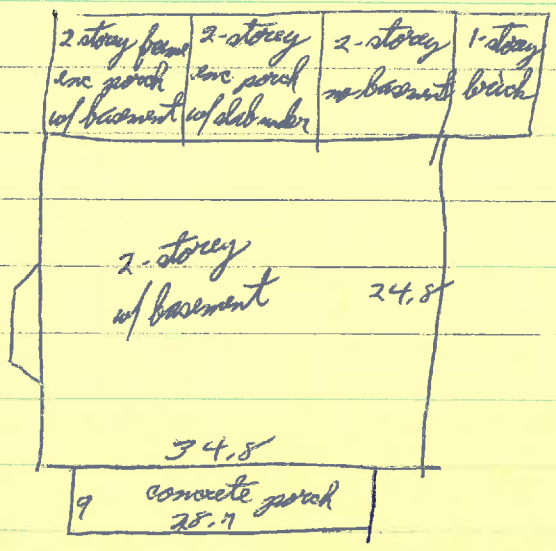 2 storey frame
enc porch
w/ basement
2-storey
enc porch
w/ slab under
2-storey
no basement
1-storey
brick
2-storey
w/ basement
24,8
34,8
9 concrete porch
28,7